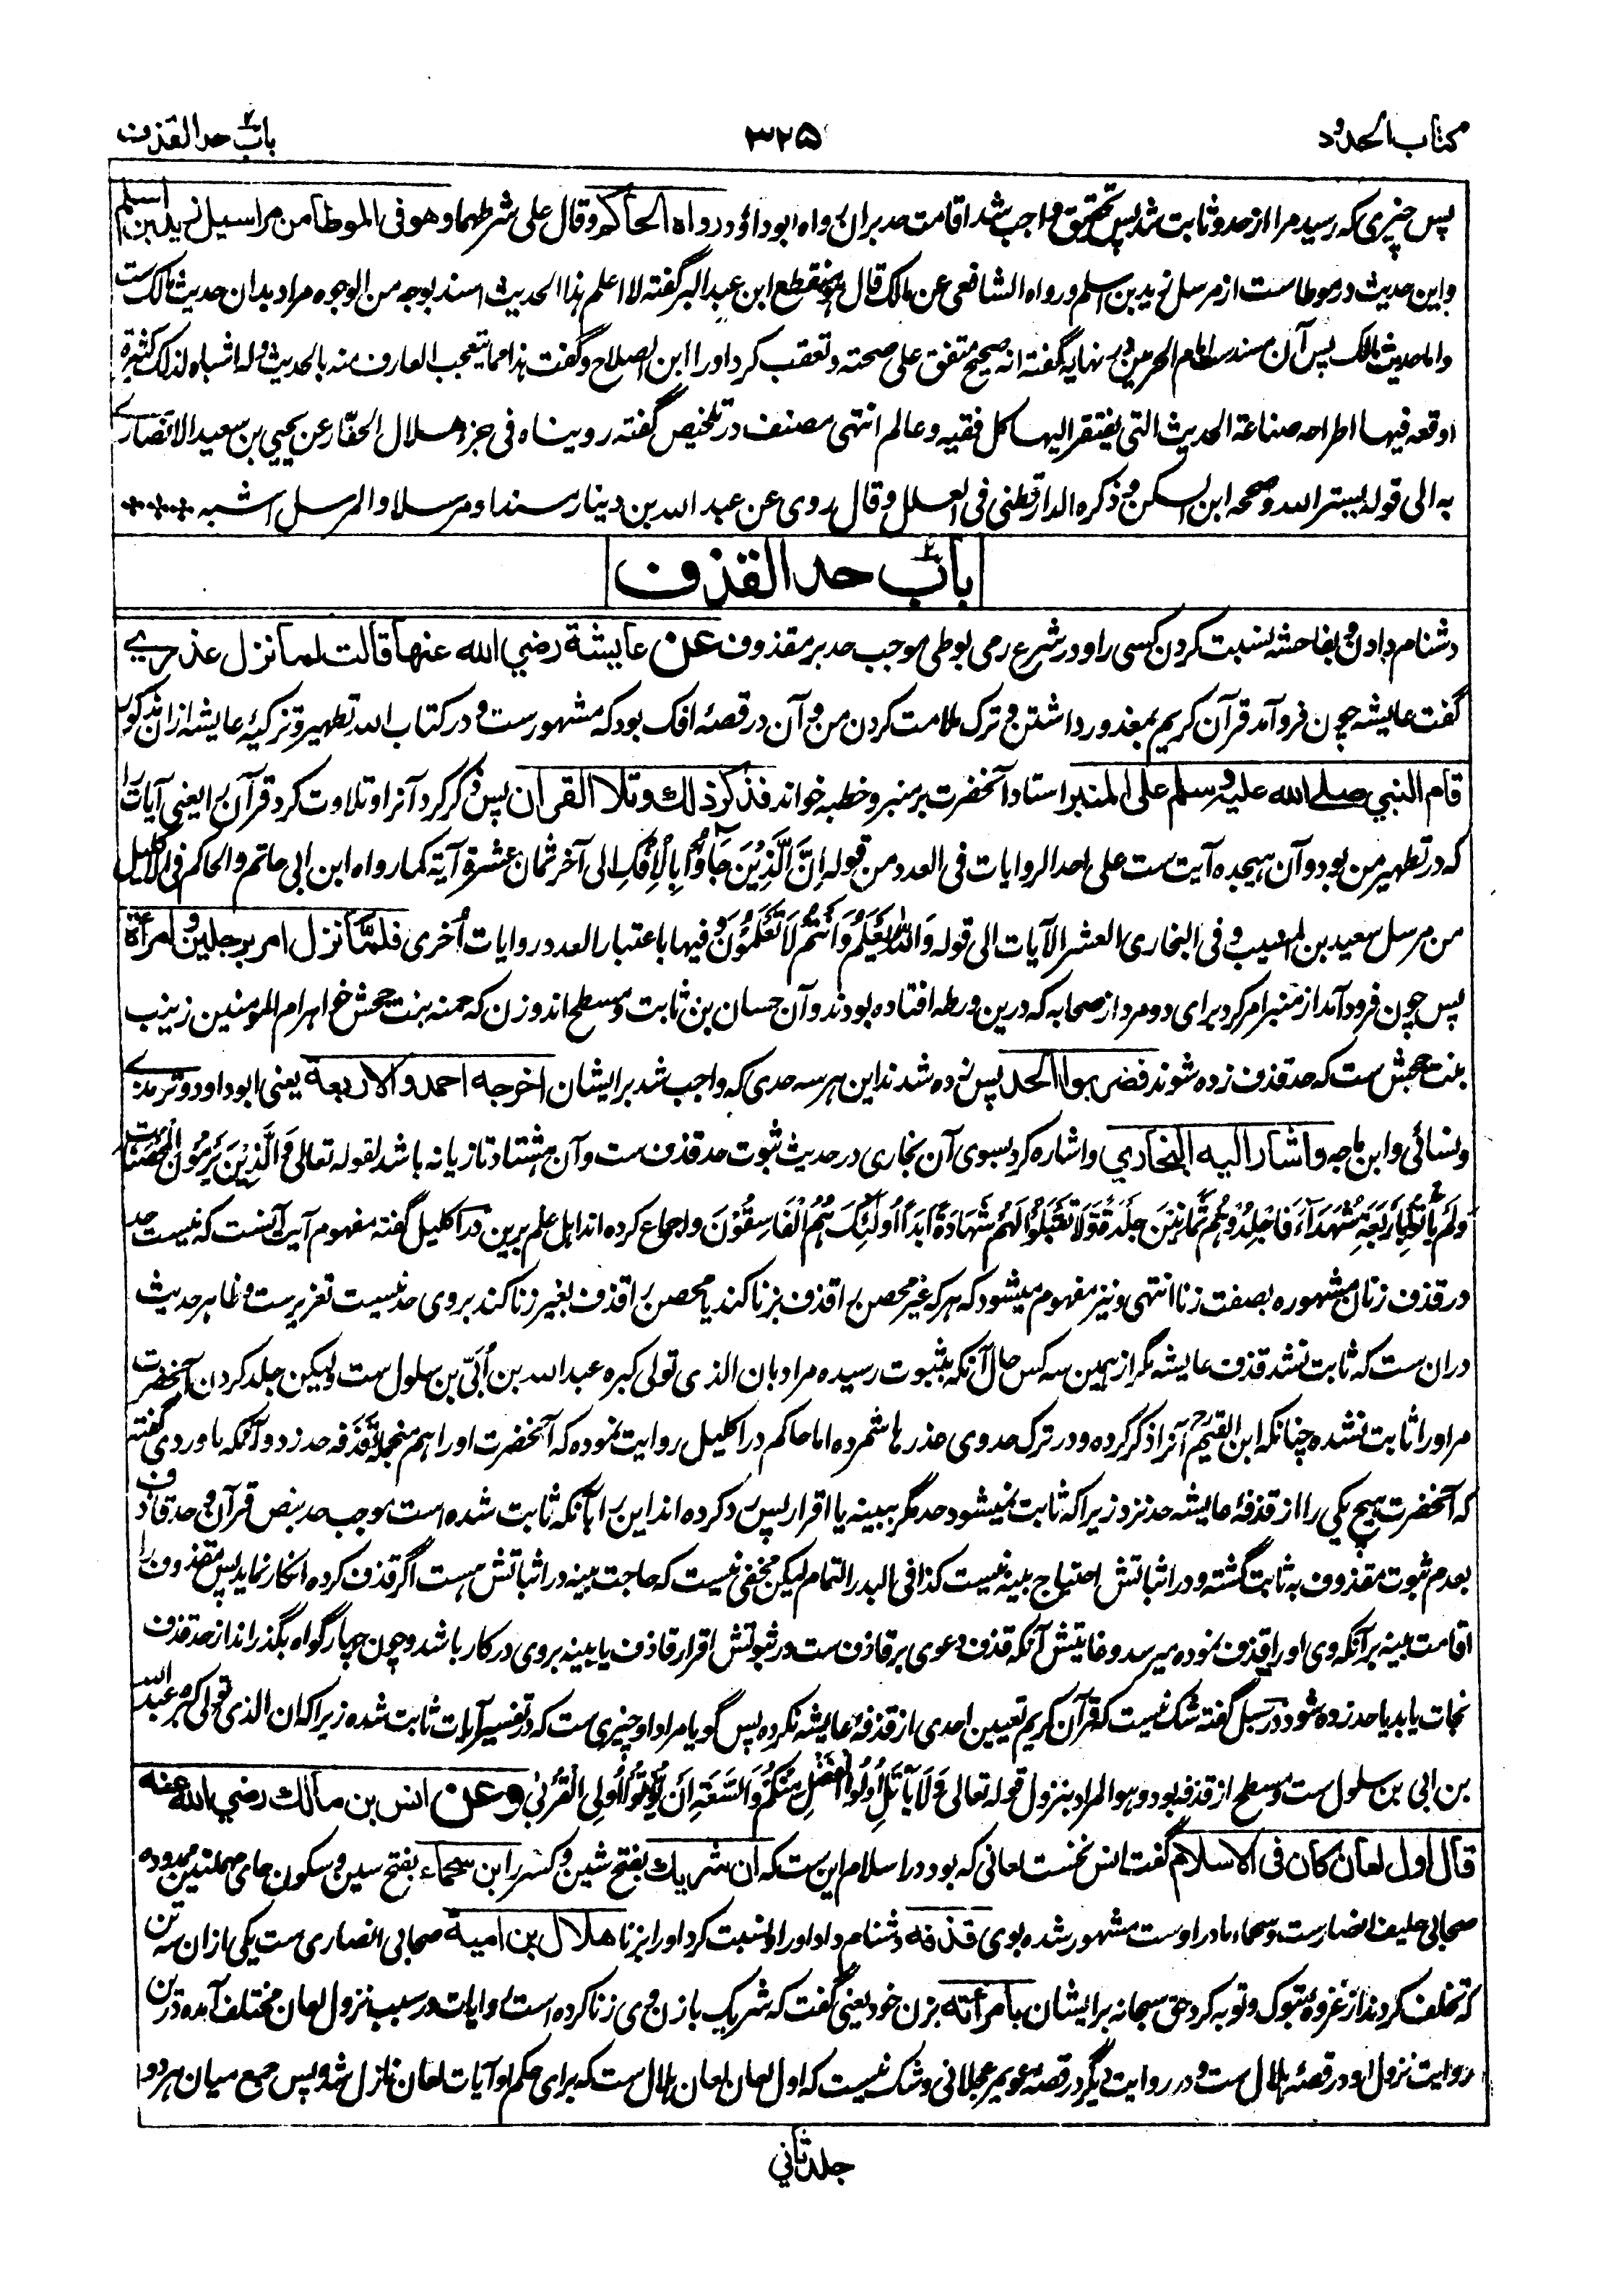 کتاب الحدود
۳۲۵
باب حد القذف
پس چیزی که رسید مرا از حد و ثابت شد پس تحقیق واجب شد اقامت حد بران رواه ابوداؤد ورواه الحاکم وقال علی شرطهما وهو فی الموطا من مراسیل زید بن اسلم
واین حدیث در موطاست از مرسل زید بن اسلم ورواه الشافعی عن مالک قال هو منقطع ابن عبد البر گفته لا اعلم هذا الحدیث اسند بوجه من الوجوه مراد بدان حدیث مالک ست
واما حدیث مالک پس آن مسند ست امام الحرمین در نهایه گفته انه صحیح متفق علی صحته وتعقب کرد او را ابن الصلاح وگفت هذا مما یتعجب العارف منه بالحدیث وله اشباه لذلک کثیرة
اوقعه فیها اطراحه صناعة الحدیث التی یفتقر الیها کل فقیه وعالم انتهی مصنف در تلخیص گفته رویناه فی جزء هلال الحفار عن یحیی بن سعید الانصاری
به الی قوله بستر الله وصححه ابن السکن وذکره الدارقطنی فی العلل وقال روی عن عبد الله بن دینار مسندا ومرسلا والمرسل اشبه
باب حد القذف
دشنام دادن و بفاحشه نسبت کردن کسی را ودر شرع رمی بوطی موجب حد بر مقذوف عن عایشة رضي الله عنها قالت لما نزل عذري
گفت عایشه چون فرو آمد قرآن کریم بمعذور داشتن و ترک ملامت کردن من و آن در قصهٔ افک بود که مشهورست و در کتاب الله تطهیر وتزکیهٔ عایشه ازان مذکور
قام النبي صلے الله علیه وسلم علی المنبر استاد آنحضرت بر منبر و خطبه خواند فذکر ذلك وتلا القران پس ذکر کرد آنرا وتلاوت کرد قرآن را یعنی آیات را
که در تطهیر من بود وآن هیجده آیت ست علی احد الروایات فی العدد من قوله اِنَّ الَّذِیْنَ جَاؤُا بِالْاِفْکِ الی آخر ثمان عشرة آیة کما رواه ابن ابی حاتم والحاکم فی الاکلیل
من مرسل سعید بن المسیب وفی البخاری العشر الآیات الی قوله وَاللهُ یَعْلَمُ وَاَنْتُمْ لَا تَعْلَمُوْنَ وفیها باعتبار العدد روایات اُخری فلمّا نزل امر برجلین وامرأة
پس چون فرود آمد از منبر امر کرد برای دو مرد از صحابه که درین ورطه افتاده بودند وآن حسان بن ثابت ومسطح اند وزن که حمنه بنت جحش خواهر ام المومنین زینب
بنت جحش ست که حد قذف زده شوند فضربوا الحد پس زده شدند این هر سه حدی که واجب شد بر ایشان اخرجه احمد والاربعة یعنی ابوداود وترمذی
ونسائی وابن ماجه واشار الیه البخاري واشاره کرد بسوی آن بخاری در حدیث ثبوت حد قذف ست وآن هشتاد تازیانه باشد لقوله تعالی وَالَّذِیْنَ یَرْمُوْنَ الْمُحْصَنٰتِ
ولَمْ یَاْتُوْا بِاَرْبَعَةِ شُهَدَآءَ فَاجْلِدُوْهُمْ ثَمَانِیْنَ جَلْدَةً وَّلَا تَقْبَلُوْا لَهُمْ شَهَادَةً اَبَدًا اُولٰئِکَ هُمُ الْفَاسِقُوْنَ واجماع کرده اند اهل علم برین در اکلیل گفته مفهوم آیت آنست که نیست حد
در قذف زنان مشهوره بصفت زنا انتهی ونیز مفهوم میشود که هر که غیر محصن را قذف بزنا کند یا محصن را قذف بغیر زنا کند بروی حد نیست تعزیرست وظاهر حدیث
دران ست که ثابت نشد قذف عایشه مگر از همین سه کس حال آنکه بثبوت رسیده مراد بان الذی تولی کبره عبد الله بن اُبَیّ بن سلول ست ولیکن جلد کردن آنحضرت
مر او را ثابت نشده چنانکه ابن القیم آنرا ذکر کرده ودر ترک حد وی عذرها شمرده اما حاکم در اکلیل روایت نموده که آنحضرت او را هم منجمله قَذَفه حد زد وآنکه ماوردی گفته
که آنحضرت هیچ یکی را از قذفهٔ عایشه حد نزد زیرا که ثابت نمیشود حد مگر ببینه یا اقرار پس رد کرده اند این را بآنکه ثابت شده است موجب حد بنص قرآن وحد قاذف
بعدم ثبوت مقذوف به ثابت گشته ودر اثباتش احتیاج بینه نیست کذا فی البدر التمام لیکن مخفی نیست که حاجت بینه در اثباتش هست اگر قذف کرده انکار نماید پس مقذوف را
اقامت بینه بر آنکه وی او را قذف نموده میرسد وغایتش آنکه قذف دعوی بر قاذف ست در ثبوتش اقرار قاذف یا بینه بروی در کار باشد وچون چهار گواه بگذراند از حد قذف
نجات یابد یا حد زده شود در سبل گفته شک نیست که قرآن کریم تعیین احدی از قذفهٔ عایشه نکرده پس گویا مراد او چیزی ست که در تفسیر آیات ثابت شده زیرا که ان الذی تولی کبره عبد الله
بن ابی بن سلول ست ومسطح از قذفه بود وهو المراد بنزول قوله تعالی وَلَا یَاْتَلِ اُولُوا الْفَضْلِ مِنْکُمْ وَالسَّعَةِ اَنْ یُّؤْتُوْا اُولِی الْقُرْبٰی وعن انس بن مالك رضي الله عنه
قال اول لعان کان فی الاسلام گفت انس نخست لعانی که بود در اسلام این ست که ان شریك بفتح شین وکسر را ابن سحماء بفتح سین وسکون حای مهملتین ممدوده
صحابی حلیف انصارست وسحماء مادر اوست مشهور شده بوی قذفه دشنام داد او را ونسبت کرد او را بزنا هلال بن امیة صحابی انصاری ست یکی ازان سه تن
که تخلف کردند از غزوهٔ تبوک وتوبه کرد حق سبحانه بر ایشان بامرأته بزن خود یعنی گفت که شریک بازن وی زنا کرده است وروایات در سبب نزول لعان مختلف آمده درین
روایت نزول او در قصهٔ هلال ست ودر روایت دیگر در قصهٔ عویمر عجلانی وشک نیست که اول لعان لعان هلال ست که برای حکم او آیات لعان نازل شد پس جمع میان هر دو
جلد ثاني